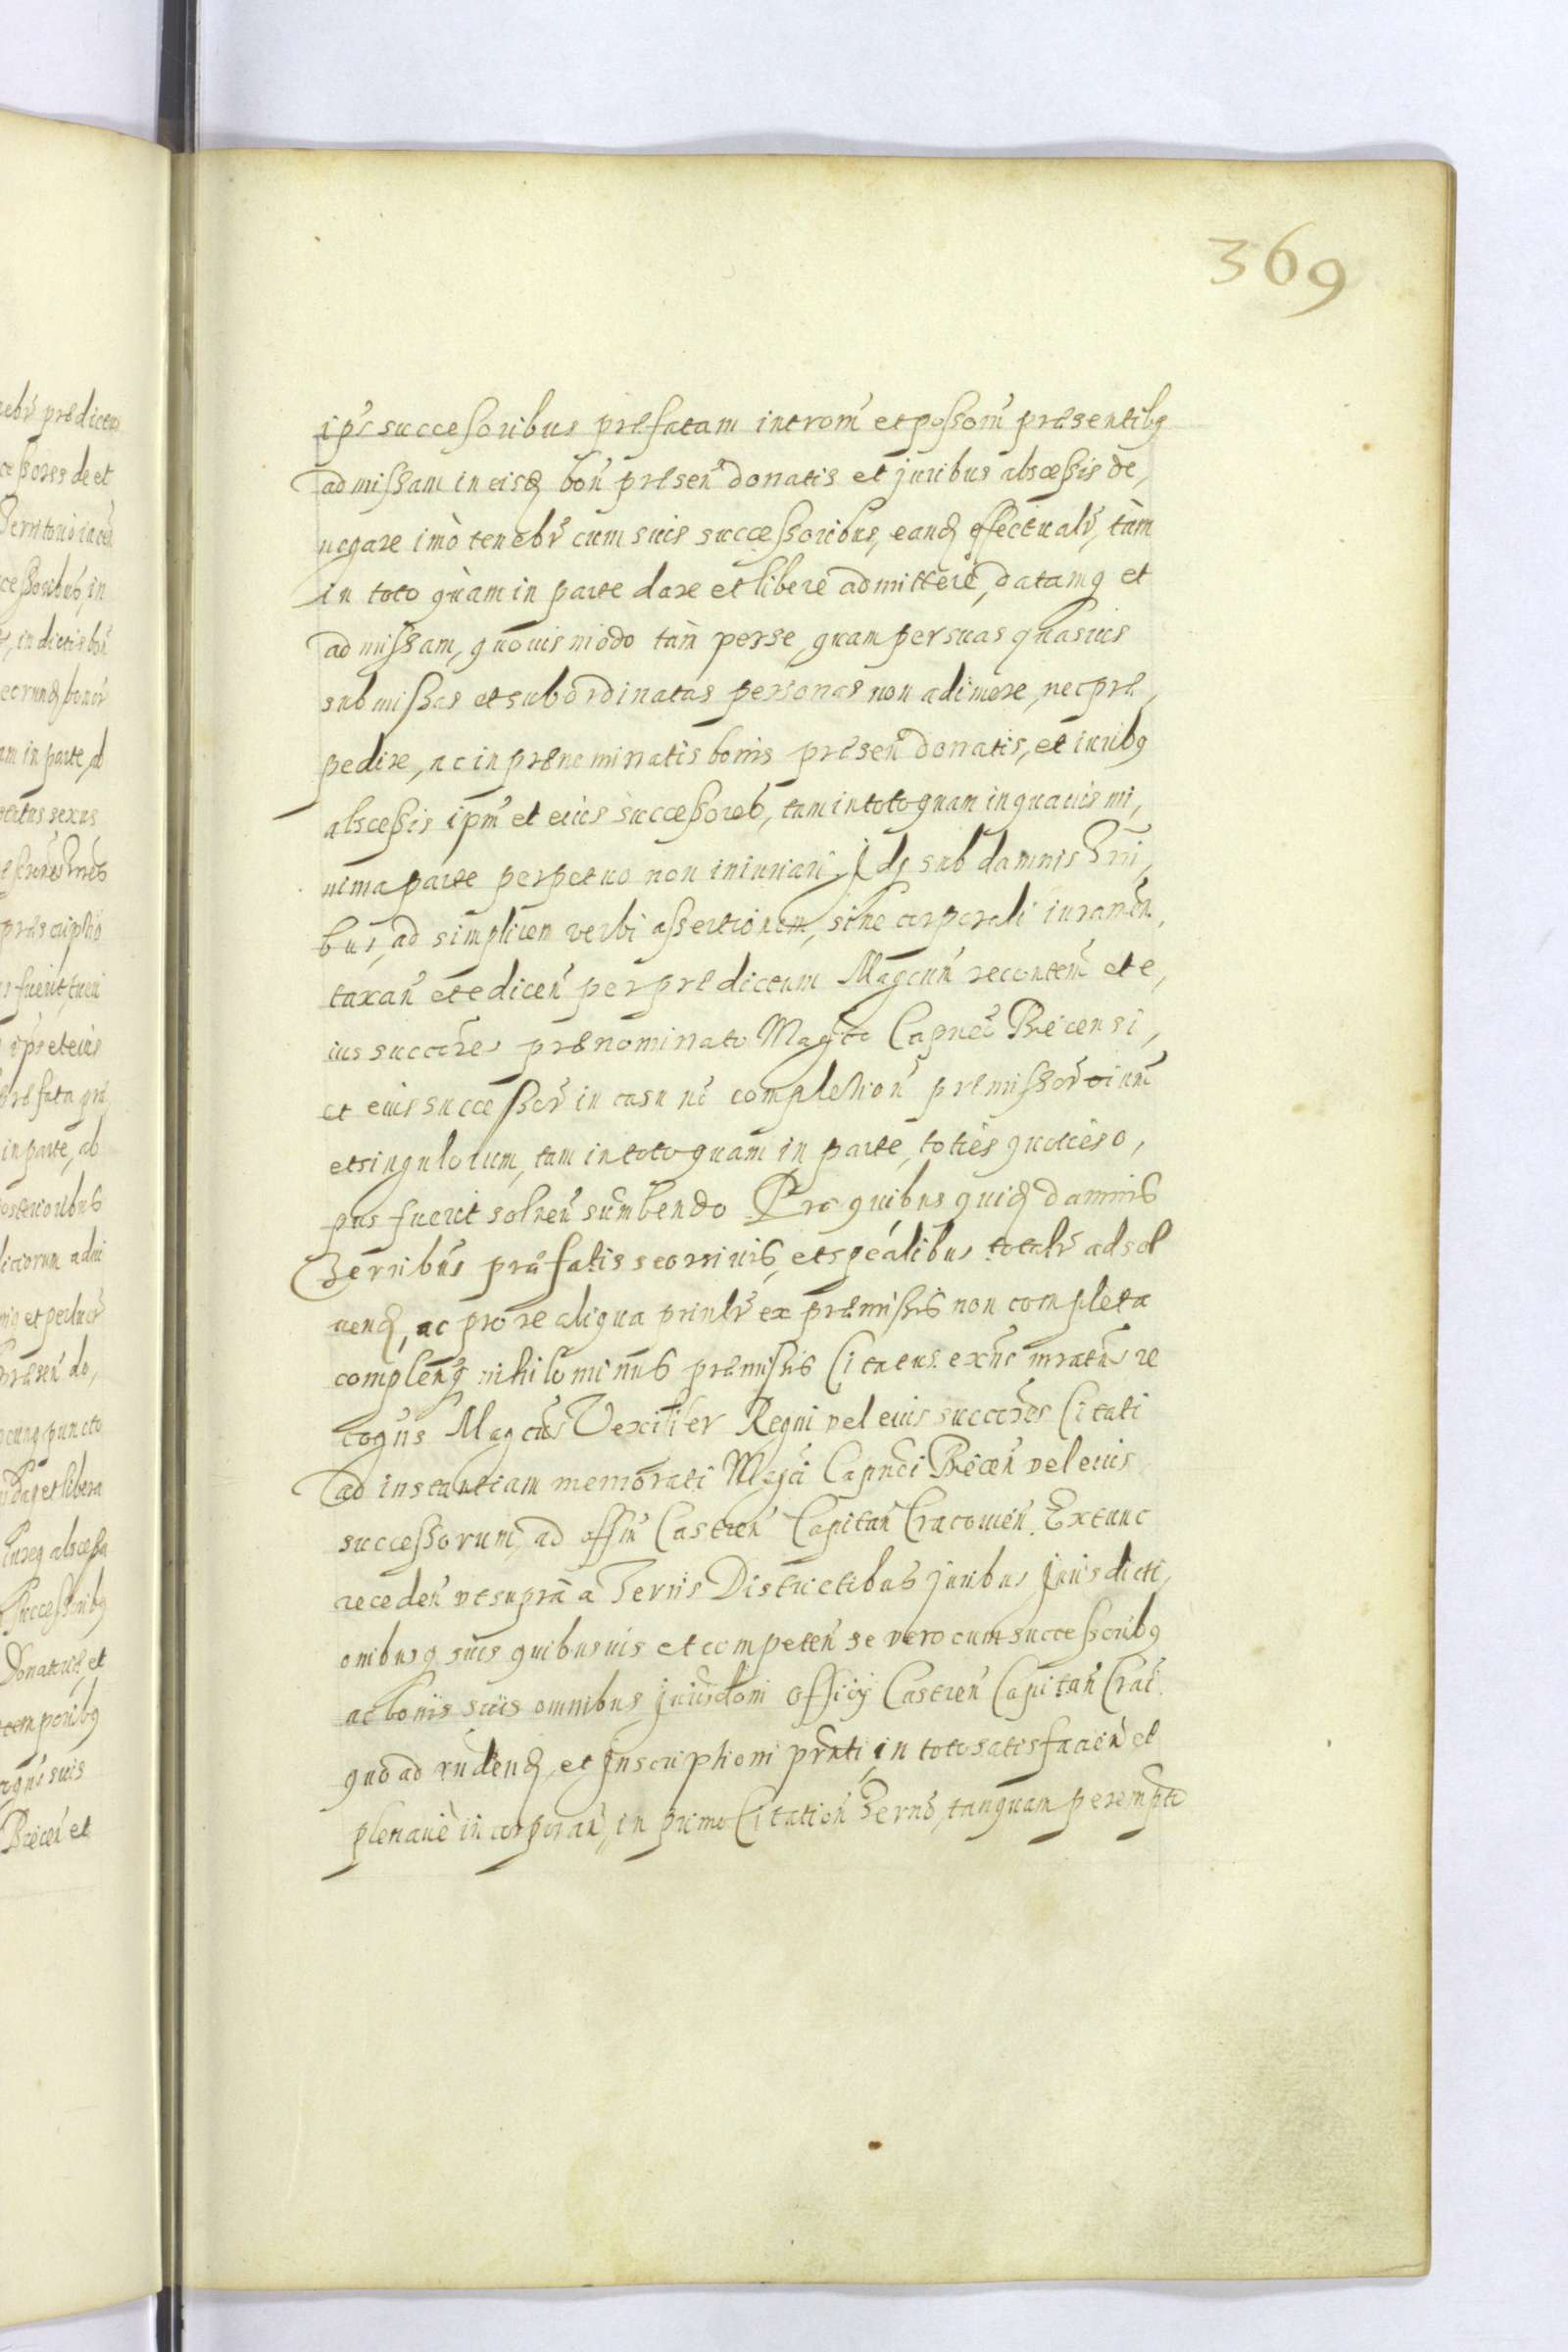 369
ips successoribus præfatam introm et possom præsentibq
admissam in eisd bon præsen donatis et juribus abscessis de,
negare imò tenebr cum suis successoribus, eand effectualr, tàm
in toto quàm in parte dare et liberè admittere, datamq et
admissam, quouis modo tam per se, quam per suas quasuis
submissas et subordinatas personas non adimere, nec præ,
pedire, nc in prænominatis bonis præsen donatis, et iuribq
abscessis ipm et eius successores, tam in toto quam in quauis mi,
nima parte perpetuo non iniuriari. Idq sub damnis Trri,
bus, ad simplicem verbi assertionem, sine corporali iuramen,
taxan et edicen per prædictum Magcum reconten et e,
ius succores prænominato Magco Capneo Biecensi,
et eius successor in casu no completion præmissor oium
et singulorum, tam in toto quam in parte, toties quoties o,
pus fuerit soluen sumbendo Pro quibus quid damnis
Terribus præfatis seorsiuis, et spealibus totalr adsol
uend, ac pro re aliqua prinlr ex præmissis non completa
complenq nihilominus præmissis Citatus extunc mratus re
cogns Magcus Vexilifer Regni vel eius succores Citati
ad instantiam memorati Magci Capnei Biecen vel eius
successorum, ad offm Castren Capitan Cracouien. Extunc
receden vt supra a Terris Districtibus juribus Jurisdicti,
onibusq suis quibusuis et competen se vero cum successoribq
ac bonis suis omnibus jurisdoni Officij Castren Capitan Crac
quo ad rudend, et Inscriptioni prnti in toto satisfacien et
plenariè incorporan, in primo Citation Termo, tanquam perempto